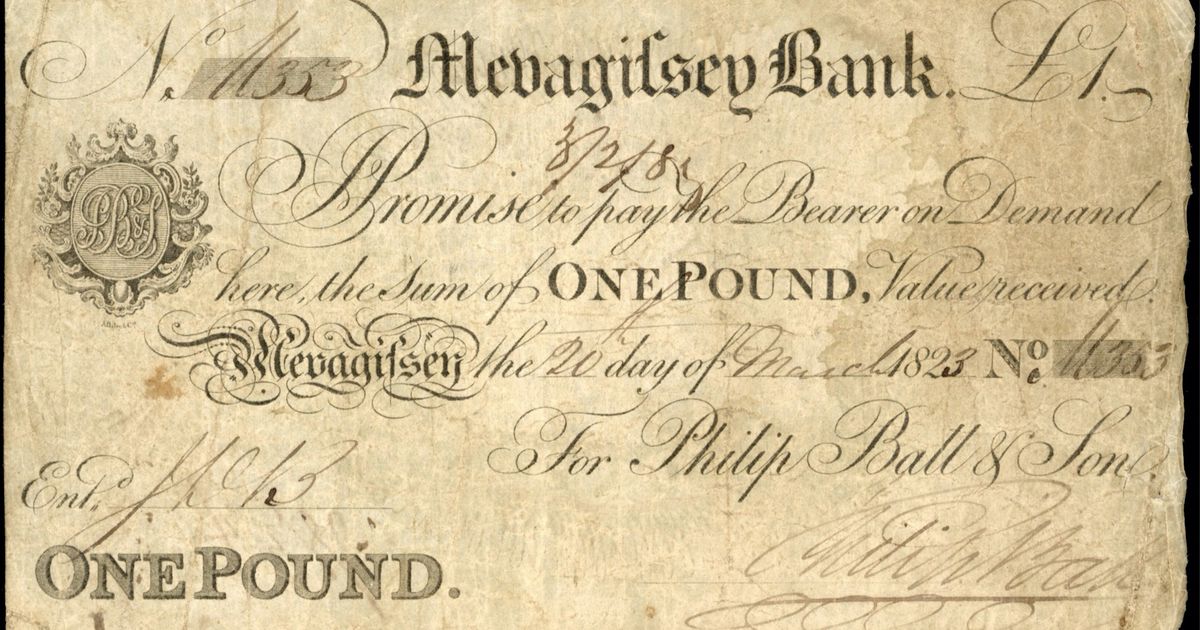 No. 11353 Mevagiſsey Bank. £1.
3/2/8
Promise to pay the Bearer on Demand
here, the Sum of ONE POUND, Value received.
Mevagiſsey the 20 day of March 1823 No. 11353
For Philip Ball & Son.
Entd.
Philip Ball
ONE POUND.